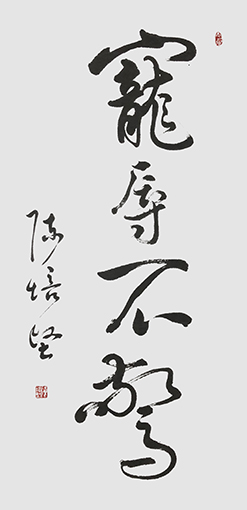 寵辱不驚
陈培坚